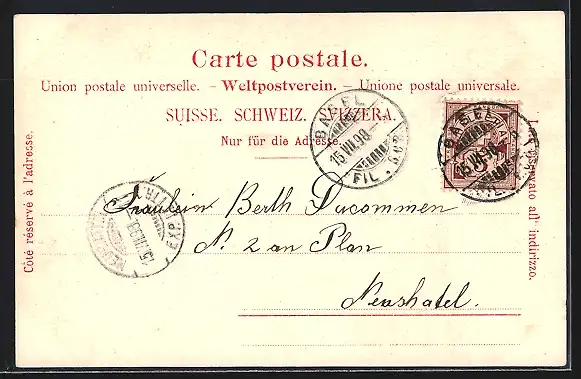 Carte postale.
Union postale universelle. – Weltpostverein. – Unione postale universale.
SUISSE. SCHWEIZ. SVIZZERA.
Nur für die Adresse.
Côté réservé à l'adresse.
all' indirizzo.
BASEL
15.VII.98
FIL.
BASEL
15.VII.98
15.VII.98
Fräulein Berth Ducommen
N. 2 an Plan
Neushatel.